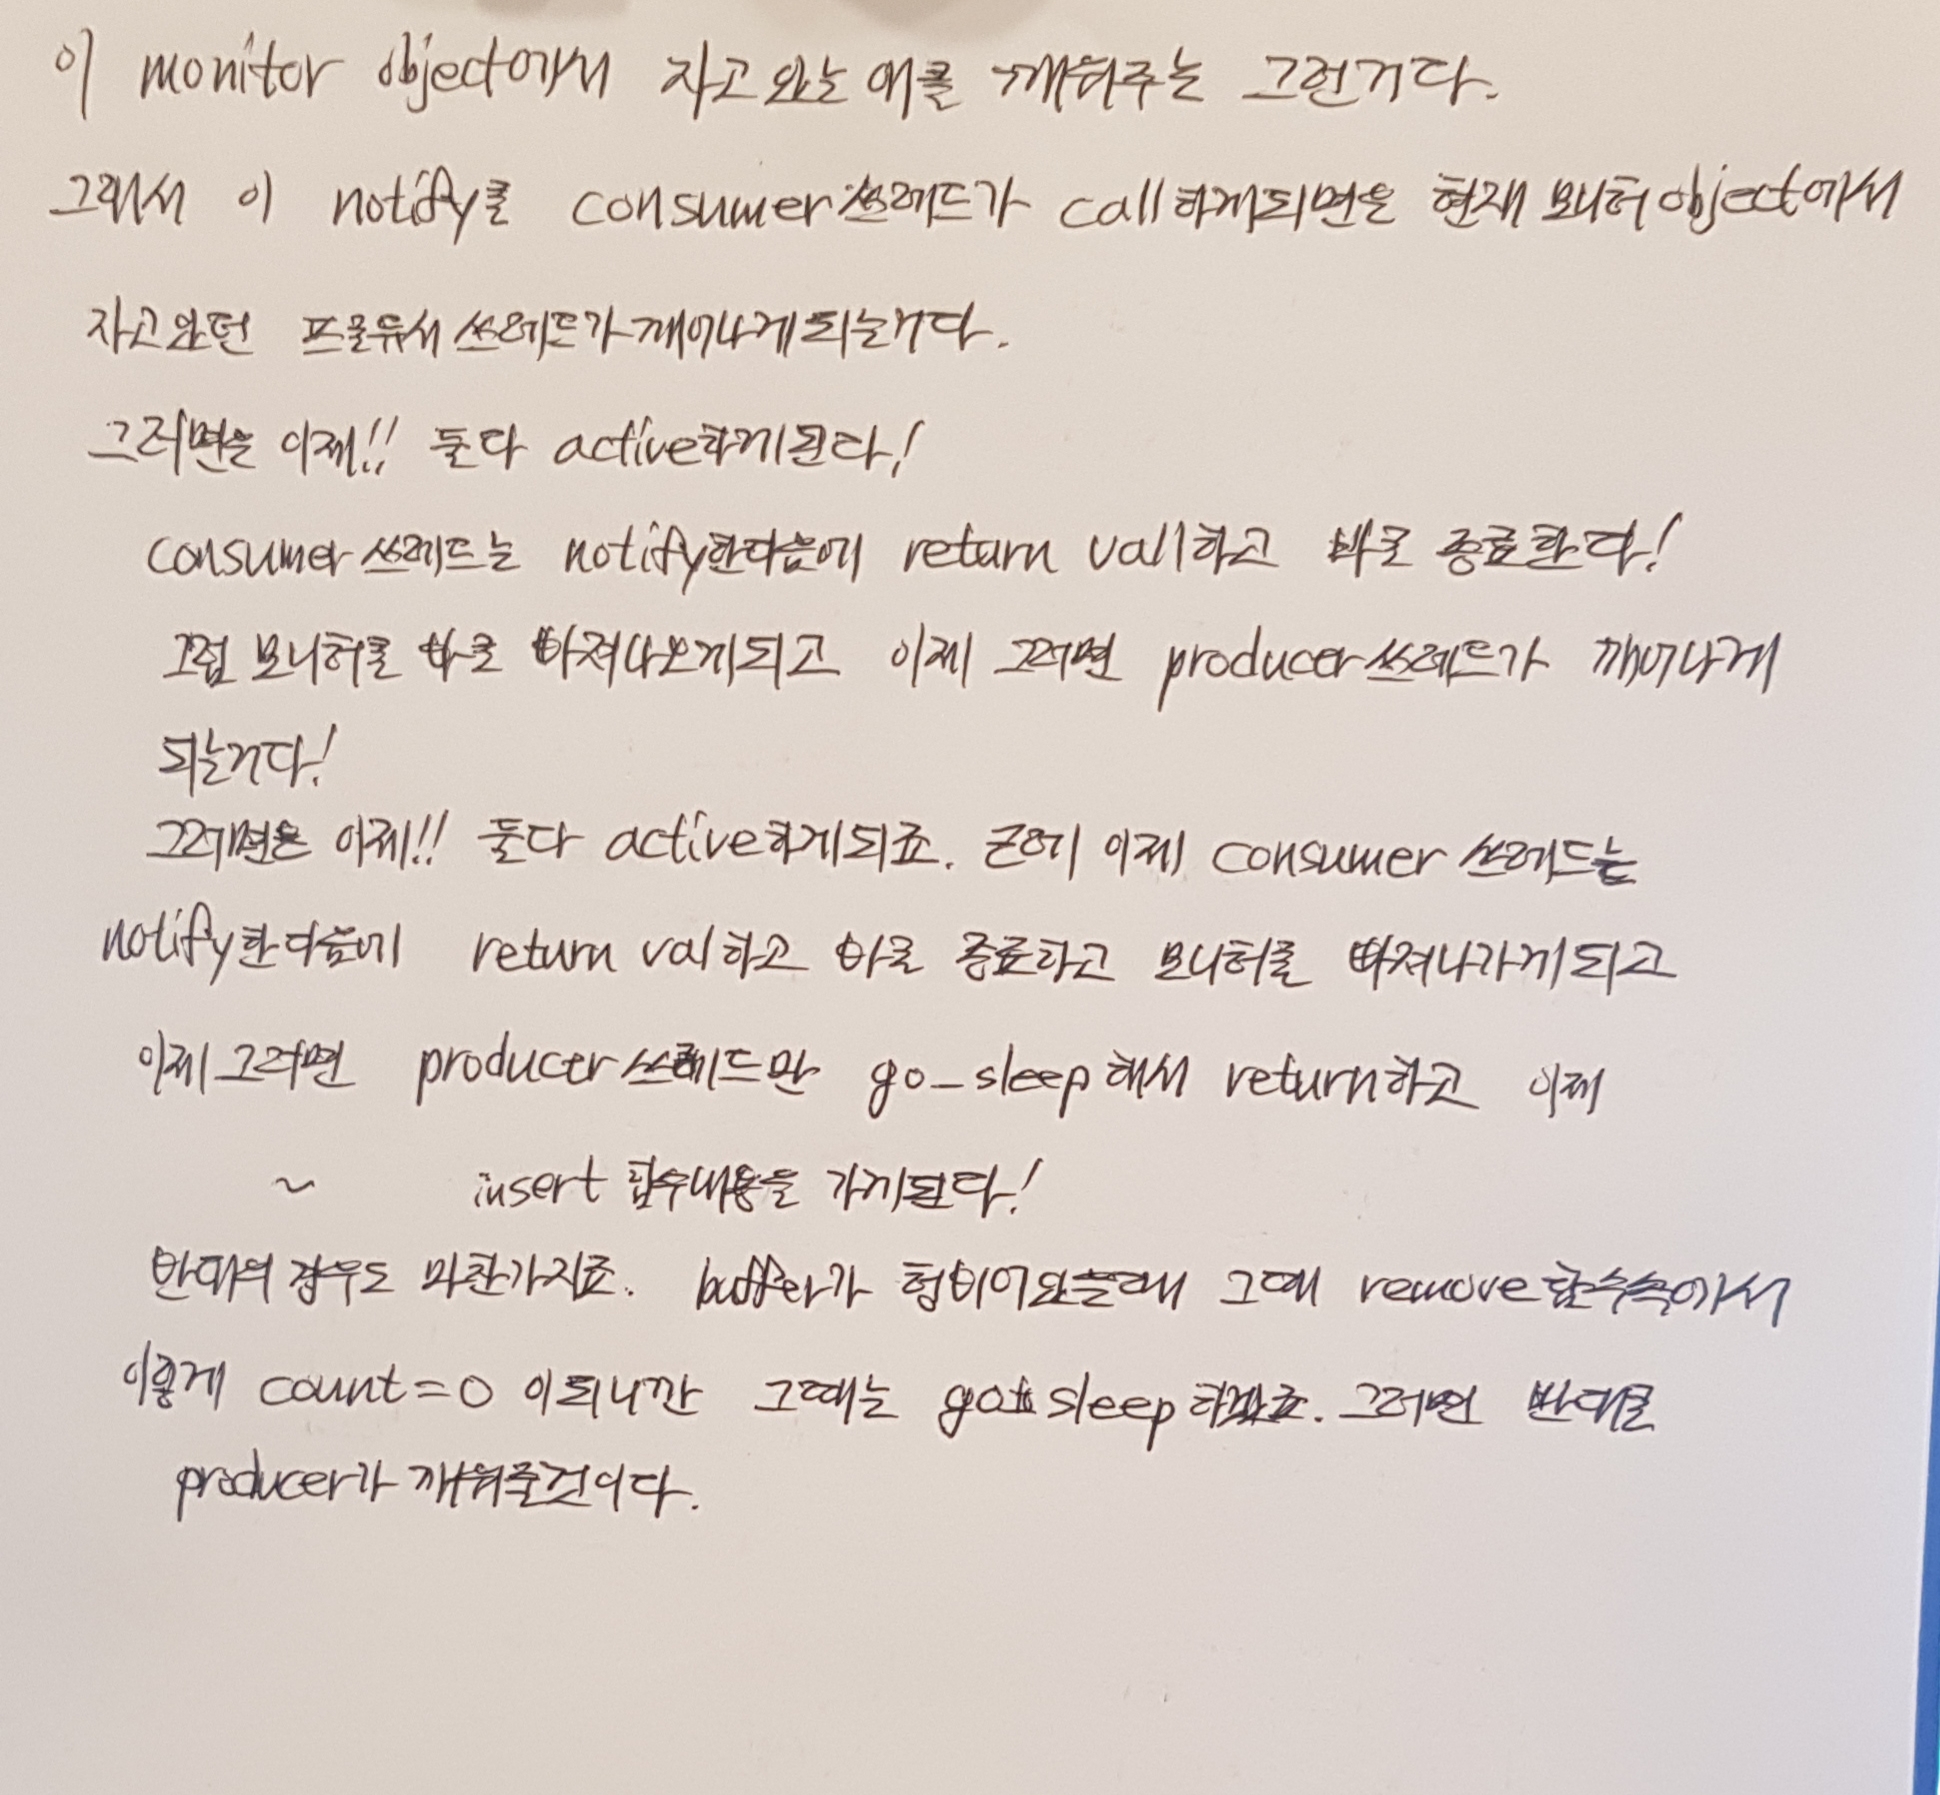 이 monitor object에서 자고있는 애를 깨워주는 그런거다.
그래서 이 notify를 consumer쓰레드가 call하게되면은 현재 모니터object에서
자고있던 프로듀서 쓰레드가 깨어나게되는거다.
그러면은 이제!! 둘다 active하게된다!
consumer쓰레드는 notify한다음에 return val하고 바로 종료한다!
그럼 모니터를 바로 빠져나오게되고 이제 그러면 producer쓰레드가 깨어나게
되는거다!
그러면은 이제!! 둘다 active하게되죠. 근데 이제 consumer 쓰레드는
notify한다음에 return val하고 바로 종료하고 모니터를 빠져나가게되고
이제 그러면 producer쓰레드만 go_sleep해서 return하고 이제
~ insert 함수내용을 가게된다!
반대의 경우도 마찬가지죠. buffer가 텅비어있을때 그때 remove함수속에서
이렇게 count=0 이되니깐 그때는 go_sleep하겠죠. 그러면 반대로
producer가 깨워줄것이다.